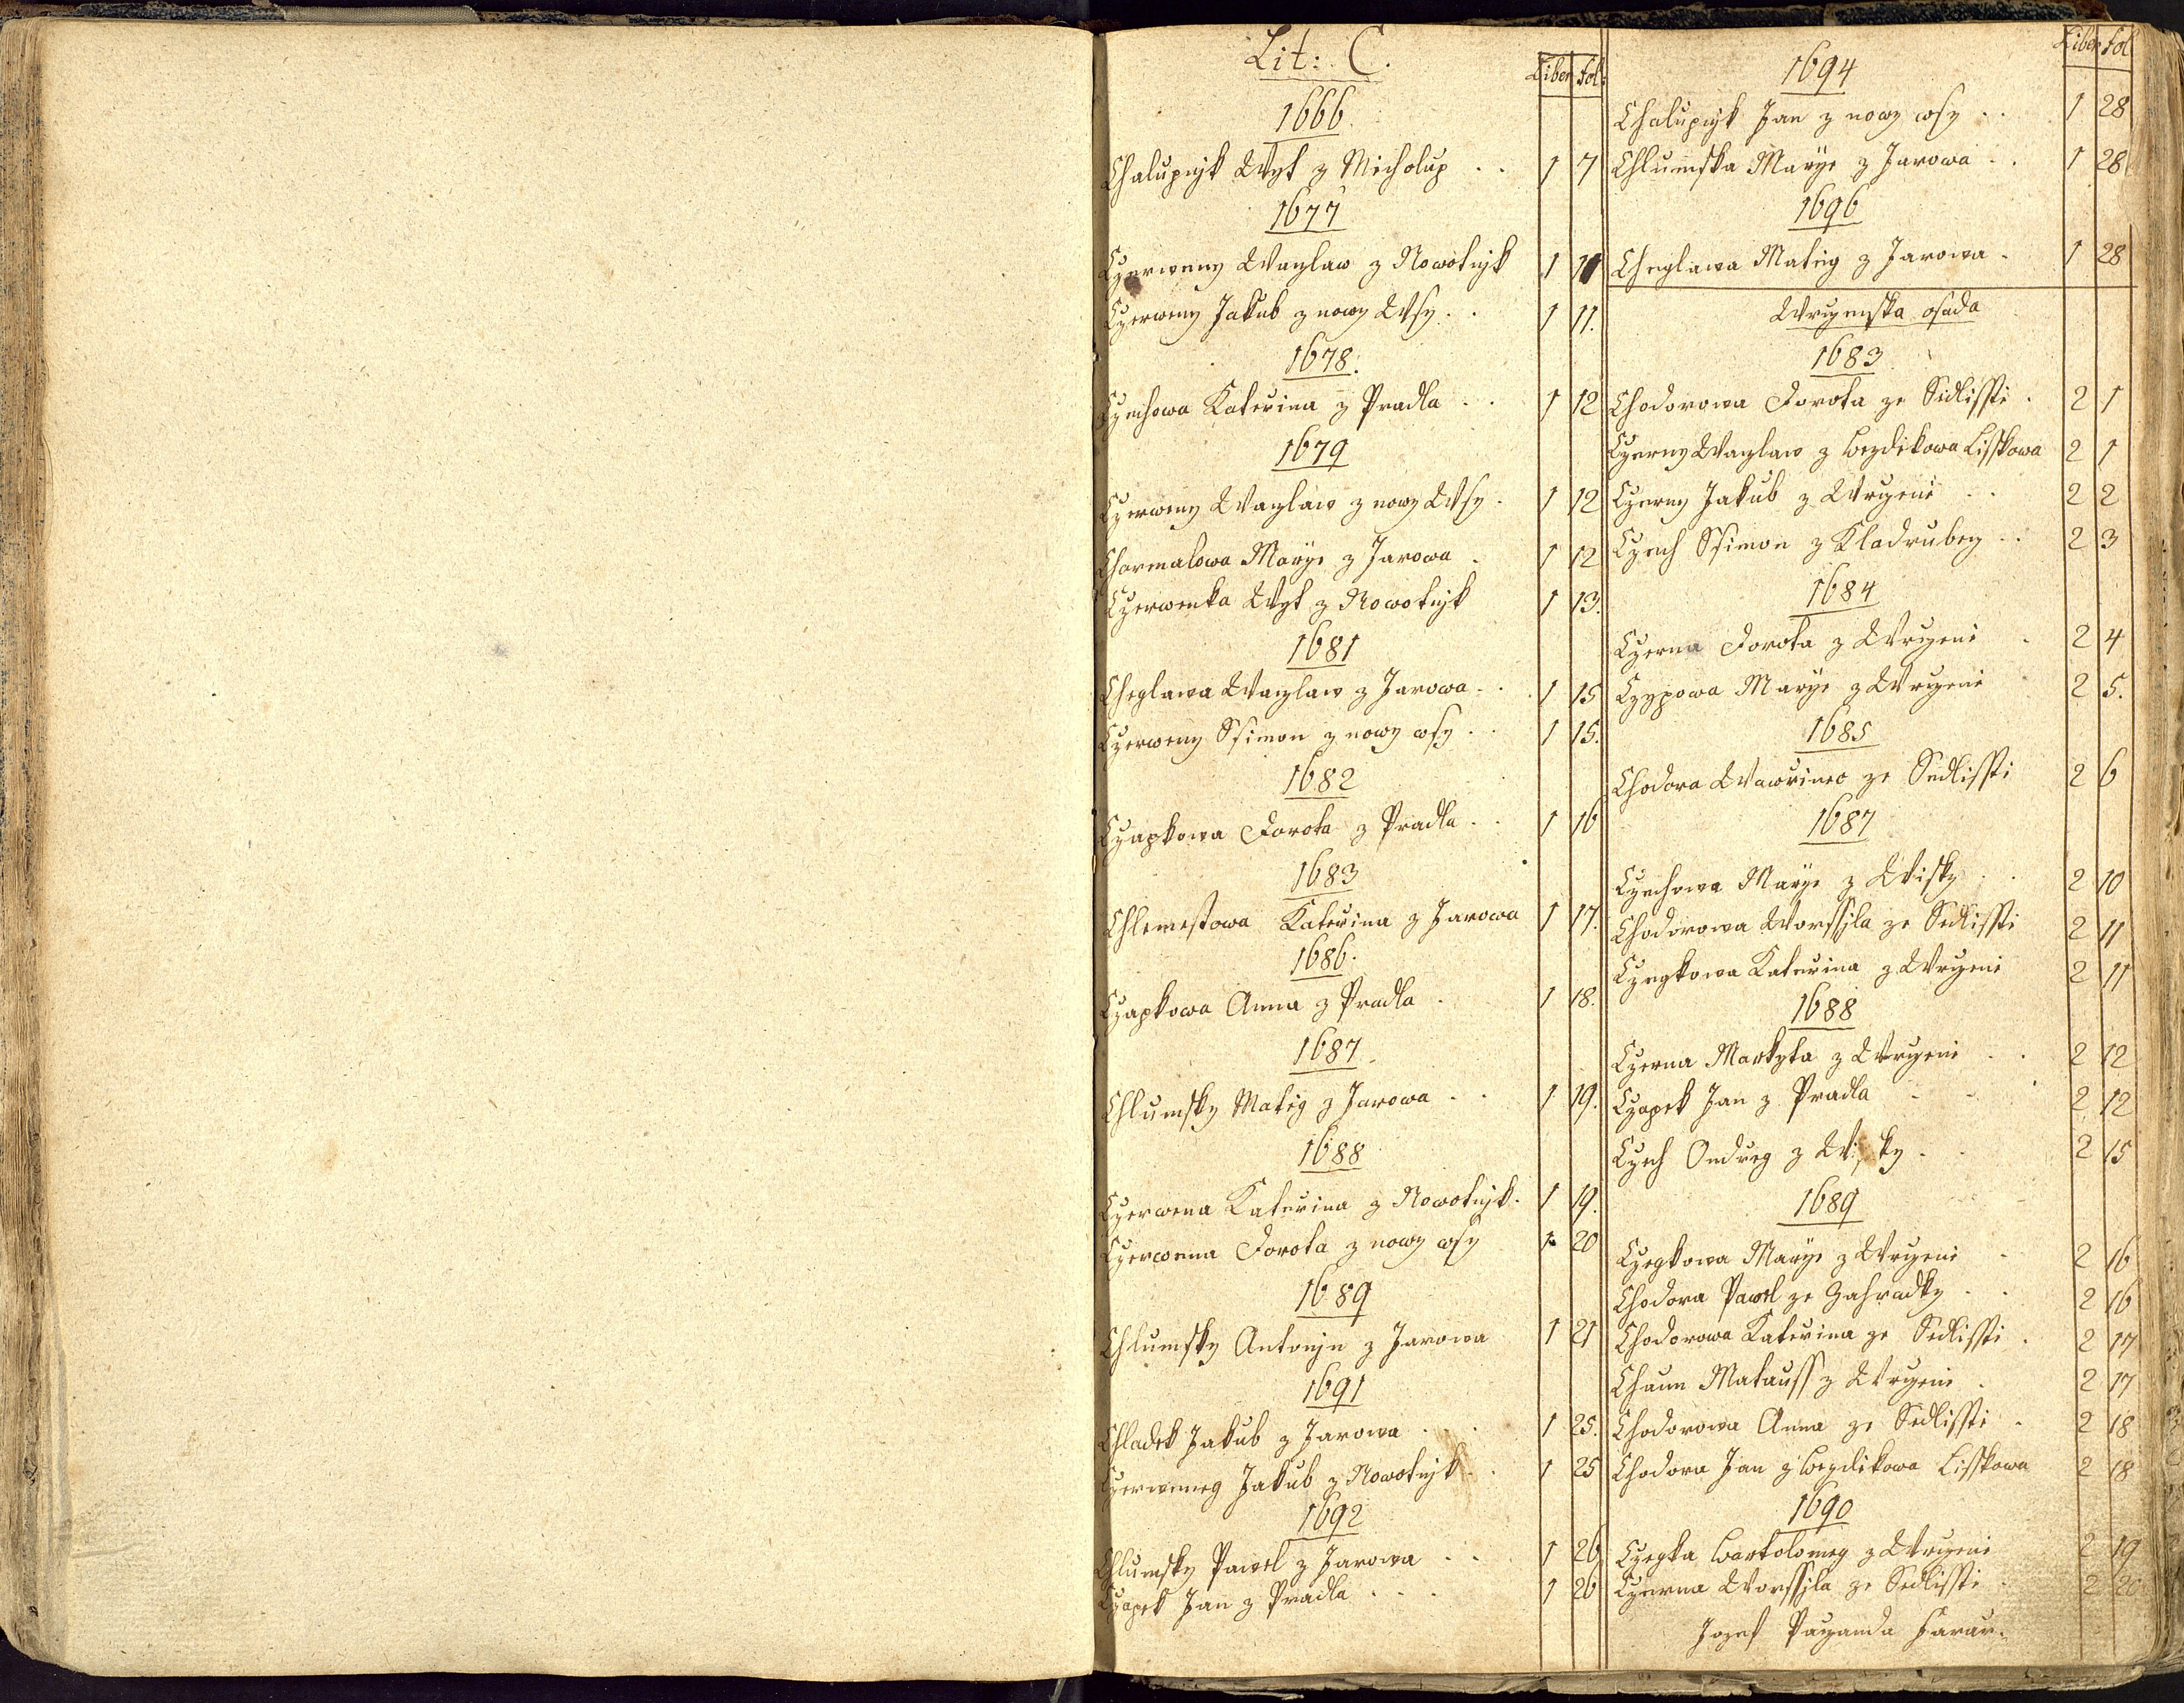 Lit: C.
Liber fol:
1666.
Chalupnjk Wyt z Micholup . . 1 7
1677
Czerweny Wazlaw z Nowotnjk 1 11
Czerweny Jakub z nowy Wsy . . 1 11.
1678.
Czechowa Katerina z Pradla . . 1 12
1679
Czerweny Wazlaw z nowy Wsy . 1 12
Charmalowa Marye z Jarowa . 1 12
Czerwenka Wyt z Nowotnjk 1 13.
1681
Cheglawa Wazlaw z Jarowa . . 1 15
Czerweny Ssimon z nowy wsy . . 1 15.
1682
Czapkowa Dorota z Pradla . . 1 16
1683
Chlemestowa Katerina z Jarowa 1 17.
1686.
Czapkowa Anna z Pradla . 1 18.
1687.
Chlumsky Mateg z Jarowa . . 1 19.
1688
Czerwena Katerina z Nowotnjk . 1 19.
Czerwena Dorota z nowy wsy 1 20
1689
Chlumsky Antonjn z Jarowa 1 21
1691
Chladek Jakub z Jarowa . . . 1 25.
Czerweneg Jakub z Nowotnjk . . 1 25
1692
Chlumsky Pawel z Jarowa . . 1 26
Czapek Jan z Pradla . . . 1 26
Liber fol
1694
Chalupnjk Jan z nowy wsy . . 1 28
Chlumska Marye z Jarowa . . 1 28
1696
Cheglawa Mateg z Jarowa . 1 28
Wrczenska osada
1683
Chodorowa Dorota ze Sedlisstie . 2 1
Czerny Wazlaw z bezdikowa Lisskowa 2 1
Czerny Jakub z Wrczene . . 2 2
Czech Ssimon z Kladrubez . . 2 3
1684
Czerna Dorota z Wrczene . 2 4
Czypowa Marye z Wrczene 2 5.
1685
Chodora Wawrinec ze Sedlissti 2 6
1687
Czechowa Marye z Wisky . . 2 10
Chodorowa Worssila ze Sedlissti 2 11
Czegkowa Katerina z Wrczene 2 11
1688
Czerna Markyta z Wrczene . . 2 12
Czapek Jan z Pradla . . 2 12
Czech Ondreg z Wisky . . 2 15
1689
Czegkowa Marye z Wrczene . 2 16
Chodora Pawel ze Zahradky . . 2 16
Chodorowa Katerina ze Sedlissti . 2 17
Chaun Matauss z Wrczene . 2 17
Chodorowa Anna ze Sedlissti . 2 18
Chodora Jan z bezdikowa Lisskowa 2 18
1690
Czegka bartolomeg z Wrczene 2 19
Czerna Worssila ze Sedlissti . 2 20
Jozef Farar.